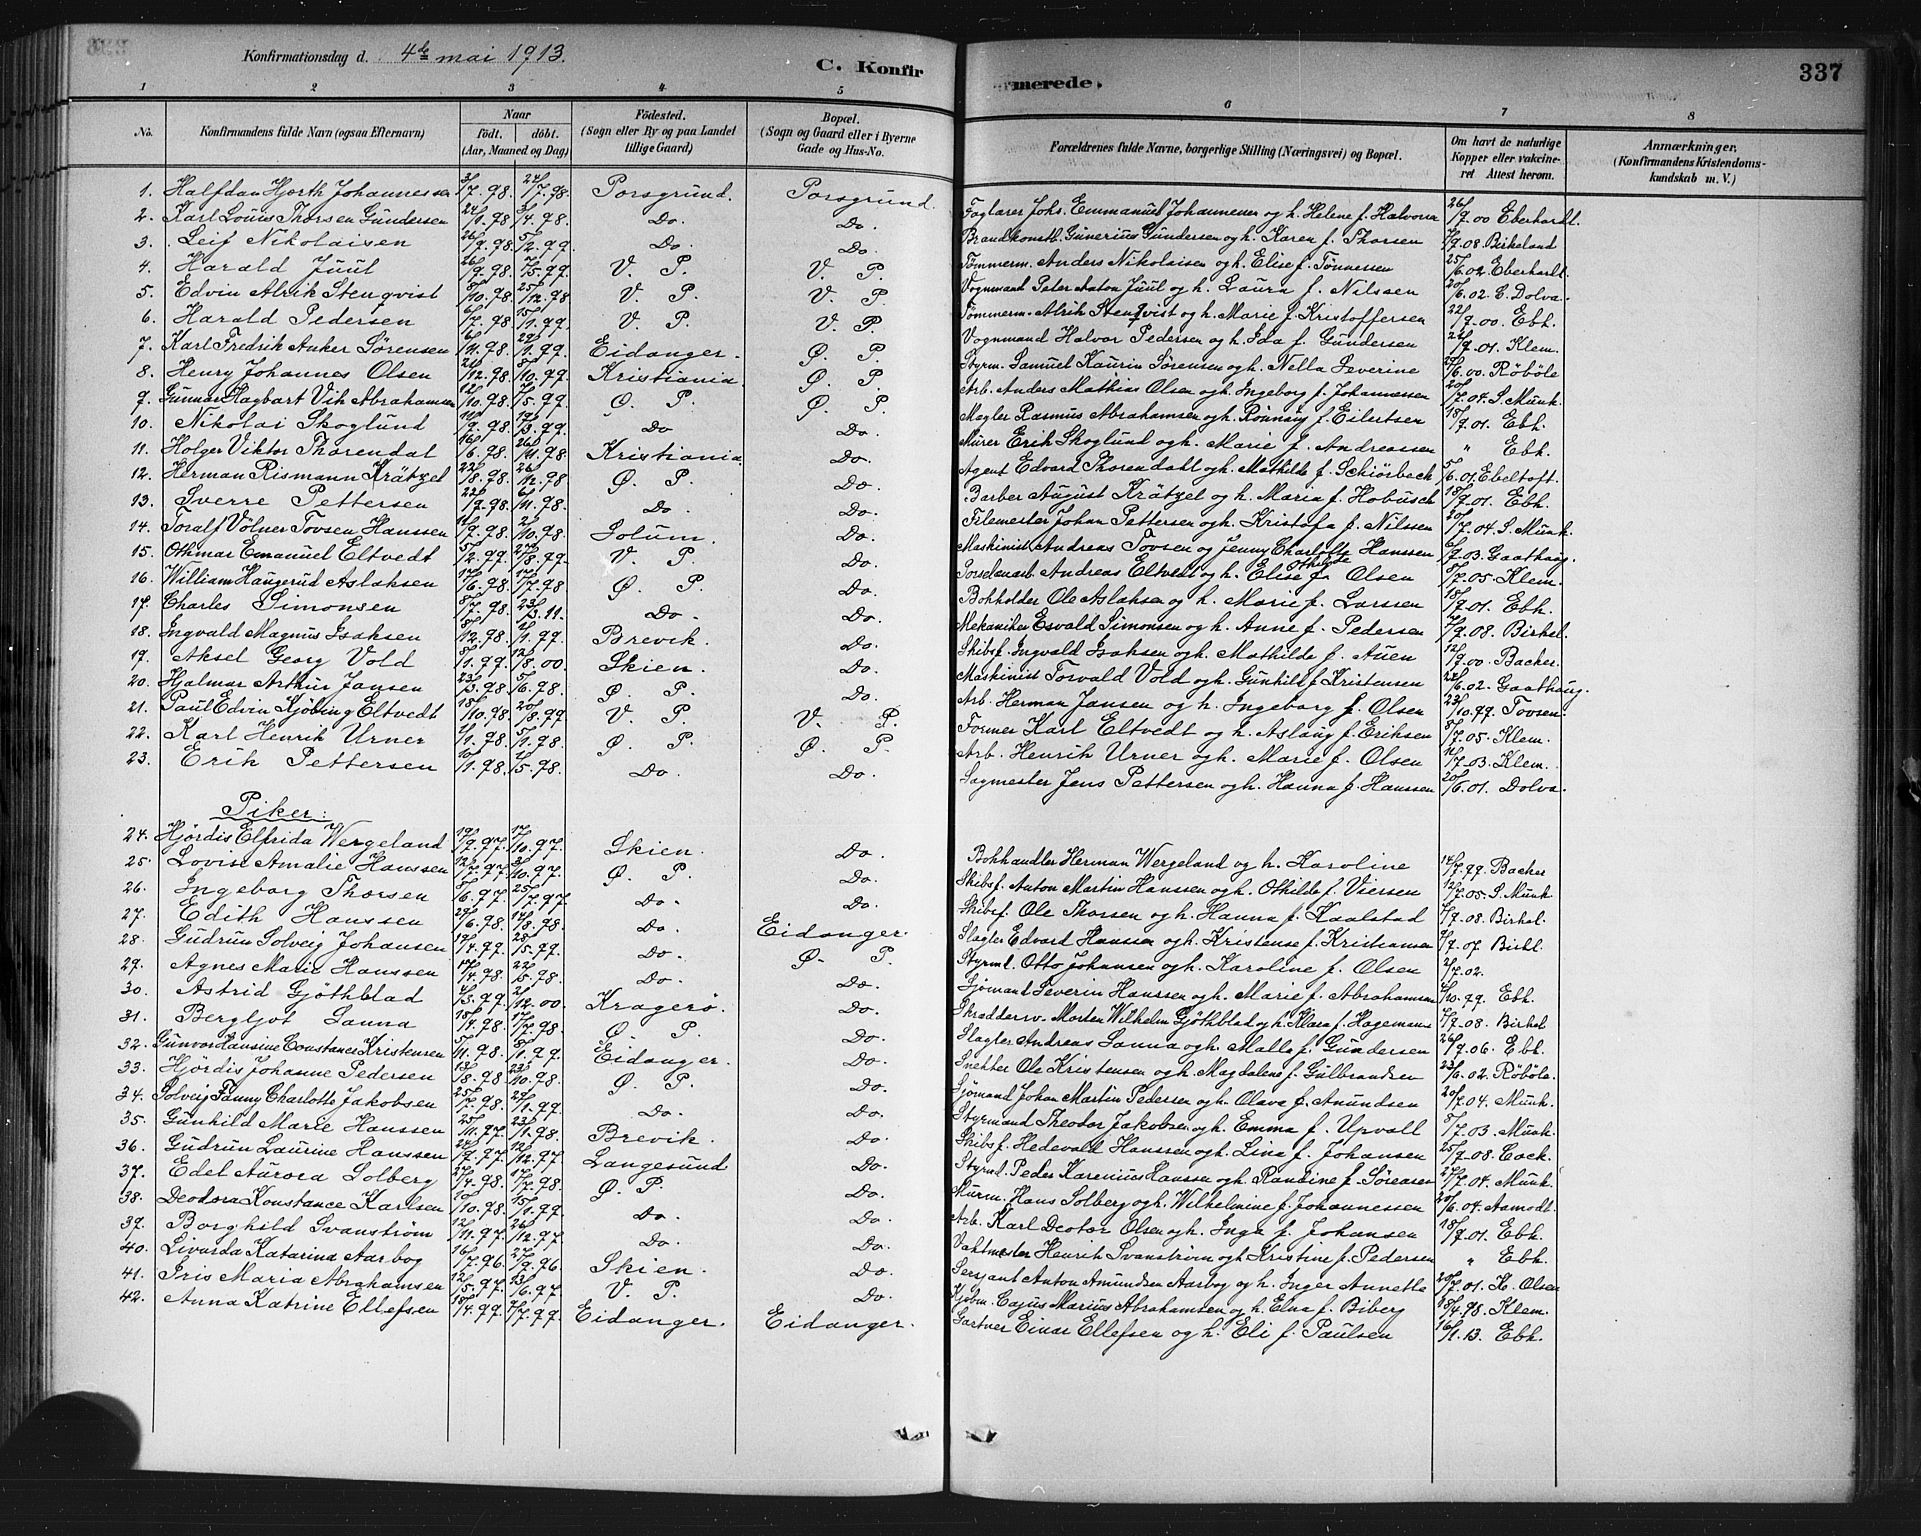 Konfirmationsdag d. 4de mai 1913.
C. Konfirmerede.
337
1 2 3 4 5 6 7 8
No. Konfirmandens fulde Navn (ogsaa Efternavn) Naar födt. döbt. (Aar, Maaned og Dag) Födested. (Sogn eller By og paa Landet tillige Gaard) Bopæl. (Sogn og Gaard eller i Byerne Gade og Hus-No. Forældrenes fulde Navne, borgerlige Stilling (Næringsvei) og Bopæl. Om havt de naturlige Kopper eller vakcineret Attest herom. Anmærkninger. (Konfirmandens Kristendomskundskab m. V.)
1. Halfdan Hjorth Johannessen 3/7.98. 24/7.98. Porsgrund. Porsgrund. Faglærer Johs. Emmanuel Johannessen og h. Helene f. Halvorsen 26/9.00 Eberhardt.
2. Karl Louis Thorsen Gundersen 24/1.98 3/4.98. Do. Do. Brandkonstb. Gunerius Gundersen og h. Karen f. Thorsen 7/9.08. Birkeland
3. Leif Nikolaisen 26/9.98. 5/2.99. Do. Do. Tømmerm. Anders Nikolaisen og h. Elise f. Tønnesen 25/6.02. Eberhardt.
4. Harald Juul 26/9.98. 7/5.99. V. P. V. P. Vognmand Peter Anton Juul og h. Laura f. Nilsen 20/6.02. E. Dolva.
5. Edvin Alrik Stenqvist 8/10.98. 25/12.98 V. P. V. P. Tømmerm. Alrik Stenqvist og h. Marie f. Kristoffersen 22/9.00. Ebh.
6. Harald Pedersen 6/7.98. 15/1.99. V. P. V. P. Vognmand Halvor Pedersen og h. Ida f. Gundersen 24/9.01. Klem.
7. Karl Fredrik Anker Sørensen 6/11.98. 29/1.99. Eidanger. Ø. P. Styrm. Samuel Kaurin Sørensen og h. Nella Severine 29/6.00. Røböle
8. Henry Johannes Olsen 21/12.98. 8/10.99. Kristiania Ø. P. Arb. Anders Mathias Olsen og h. Ingeborg f. Johannessen 20/7.04. S. Munk.
9. Gunnar Hagbart Vik Abrahamsen 12/10.98 7/5.99. Ø. P. Ø. P. Mægler Rasmus Abrahamsen og h. Rønnaug f. Eilertsen 18/9.01. Ebh.
10. Nikolai Skoglund 10/9.98. 19/3.99. Do Do. Murer Erik Skoglund og h. Marie f. Andreassen " Ebh.
11. Holger Viktor Thorendal 16/6.98. 26/11.98. Kristiania. Do. Agent Edvard Thorendahl og h. Mathilde f. Schiörbeck 5/6.01. Ebeltoft.
12. Herman Rismann Krätzel 22/8.98. 26/12.98 Ø. P. Do. Barber August Krätzel og h. Maria f. Hobusch 18/9.01. Ebh.
13. Sverre Pettersen 22/9.98. 6/11.98. Do. Do. Filemester Johan Pettersen og h. Kristofa f. Nilssen 20/7.04. S. Munk.
14. Toralf Völner Tovsen Hanssen 11/9.98. 2/10.98. Solum. Do. Maskinist Andreas Tovsen og Jenny Charlotte Hanssen 6/9.03. Gaathaug.
15. Othmar Emanuel Eltvedt 5/2.99. 27/8.99. V. P. Do. Porselænarb. Andreas Eltvedt og h. Elise Othilde f. Olsen 8/7.05. Klem.
16. William Haugerud Aslaksen 17/6.98. 17/7.98 Ø. P. Do. Bokholder Ole Aslaksen og h. Marie f. Larssen 18/9.01. Ebh.
17. Charles Simonsen 8/7.98. 23/3.11. Do. Do. Mekaniker Esvald Simonsen og h. Anne f. Pedersen 7/9.08. Birkel.
18. Ingvald Magnus Isaksen 8/12.98. 2/1.99. Brevik. Do. Skibsf. Ingvald Isaksen og h. Mathilde f. Auen 12/9.00. Bacher.
19. Aksel Georg Vold 8/1.99. 12/8.00. Skien. Do. Maskinist Torvald Vold og h. Gunhild f. Kristensen 22/6.02. Gaathaug.
20. Hjalmar Arthur Jansen 23/3.98. 5/6.98. Ø. P. Do. Arb. Herman Jansen og h. Ingeborg f. Olsen 23/10.99. Tovsen.
21. Paul Edvin Kjöbing Eltvedt 18/10.98. 20/8.99 V. P. V. P. Former Karl Eltvedt og h. Aslaug f. Eriksen 8/7.05. Klem.
22. Karl Henrik Urner 2/11.98. 5/1.98. Ø. P. Ø. P. Arb. Henrik Urner og h. Marie f. Olsen 11/7.03. Klem.
23. Erik Pettersen 10/1.98. 1/5.98. Do. Do. Sagmester Jens Pettersen og h. Hanna f. Hanssen 20/6.01. Dolva.
Piker:
24. Hjørdis Elfrida Wergeland 19/9.97. 17/10.97. Skien. Do. Bokhandler Herman Wergeland og h. Karoline 14/7.99. Bacher
25. Lovise Amalie Hanssen 12/7.97 3/10.97. Ø. P. Do. Skibsf. Anton Martin Hanssen og h. Othilde f. Viersen 12/7.05. S. Munk
26. Ingeborg Thorsen 8/6.97. 25/7.97. Do. Do. Skibsf. Ole Thorsen og h. Hanna f. Kaalstad 7/9.08. Birkel.
27. Edith Hanssen 29/6.98. 14/8.98. Do. Eidanger. Slagter Edvard Hanssen og h. Kristense f. Kristiansen 7/9.07. Birkl
28. Gudrun Solveig Johansen 19/4.99. 28/5.99. Do. Ø. P. Styrm. Otto Johansen og h. Karoline f. Olsen 2/7.02.
29. Agnes Marie Hanssen 17/4.98. 22/5.98. Do. Do. Sjømand Severin Hanssen og h. Marie f. Abrahamsen 2/10.99. Ebh.
30. Astrid Gjöthblad 4/3.99. 2/12.00. Kragerø. Do. Skrædderm. Morten Wilhelm Gjöthblad og h. Klara f. Hagemann 7/9.08. Birkel
31. Bergljot Sanna 18/4.98. 17/7.98. Ø. P. Do. Slagter Andreas Sanna og h. Malla f. Gundersen 26/9.06. Ebh.
32. Gunvor Hansine Constance Kristensen 5/11.98. 8/1.99. Eidanger. Do. Snekker Ole Kristensen og h. Magdalene f. Gulbrandsen 23/6.02. Røböle.
33. Hjördis Johanne Pedersen 13/8.98 23/10.98. Ø. P. Do. Sjömand Johan Martin Pedersen og h. Olava f. Amundsen 20/7.04. Munk.
34. Solveig Fanny Charlotte Jakobsen 25/7.98. 29/1.99. Do. Do. Styrmand Theodor Jakobsen og h. Emma f. Upvall 8/7.03. Munk.
35. Gunhild Marie Hanssen 25/11.97. 23/1.98. Brevik. Do. Skibsf. Hedevald Hanssen og h. Lina f. Johansen 25/9.08. Cock.
36. Gudrun Laurine Hanssen 24/9.97. 12/12.97 Langesund Do. Styrm. Peder Karenius Hanssen og h. Randine f. Sørensen 27/7.04. Munk.
37. Edel Aurora Solberg 27/4.98. 17/7.98. Ø. P. Do. Murm. Hans Solberg og h. Wilhelmine f. Johannessen 20/6.04. Aamodt.
38. Deodora Konstance Karlsen 10/10.98. 15/1.99. Do. Do. Arb. Karl Deotor Olsen og h. Inga f. Johansen 18/9.01. Ebh.
39. Borghild Svanstrøm 12/11.97. 26/12.97. Do. Do. Vaktmester Henrik Svanstrøm og h. Kristine f. Pedersen " Ebh.
40. Livarda Katarina Aarbog 16/7.96. 27/9.96. Skien. Do. Sersjant Anton Amundsen Aarbog og h. Inger Annette 20/7.01. K. Olsen
41. Iris Maria Abrahamsen 12/5.97. 13/6.97. V. P. Do. Kjøbm. Cajus Marius Abrahamsen og h. Elna f. Biberg 18/4.98. Klem.
42. Anna Katrine Ellefsen 18/4.99. 24/7.99. Eidanger. Eidanger. Gartner Einar Ellefsen og h. Eli f. Paulsen 16/1.13. Ebh.